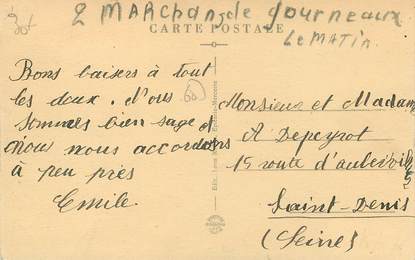 2 MARCHAND de Journeaux
Le MATIN.
CARTE POSTALE
Bons baisers à tout
les deux. Nous
sommes bien sage et
nous nous accordons
à peu près
Emile.
Monsieur et Madame
A Depeyrot
15 route d'aubervil
Saint-Denis
(Seine)